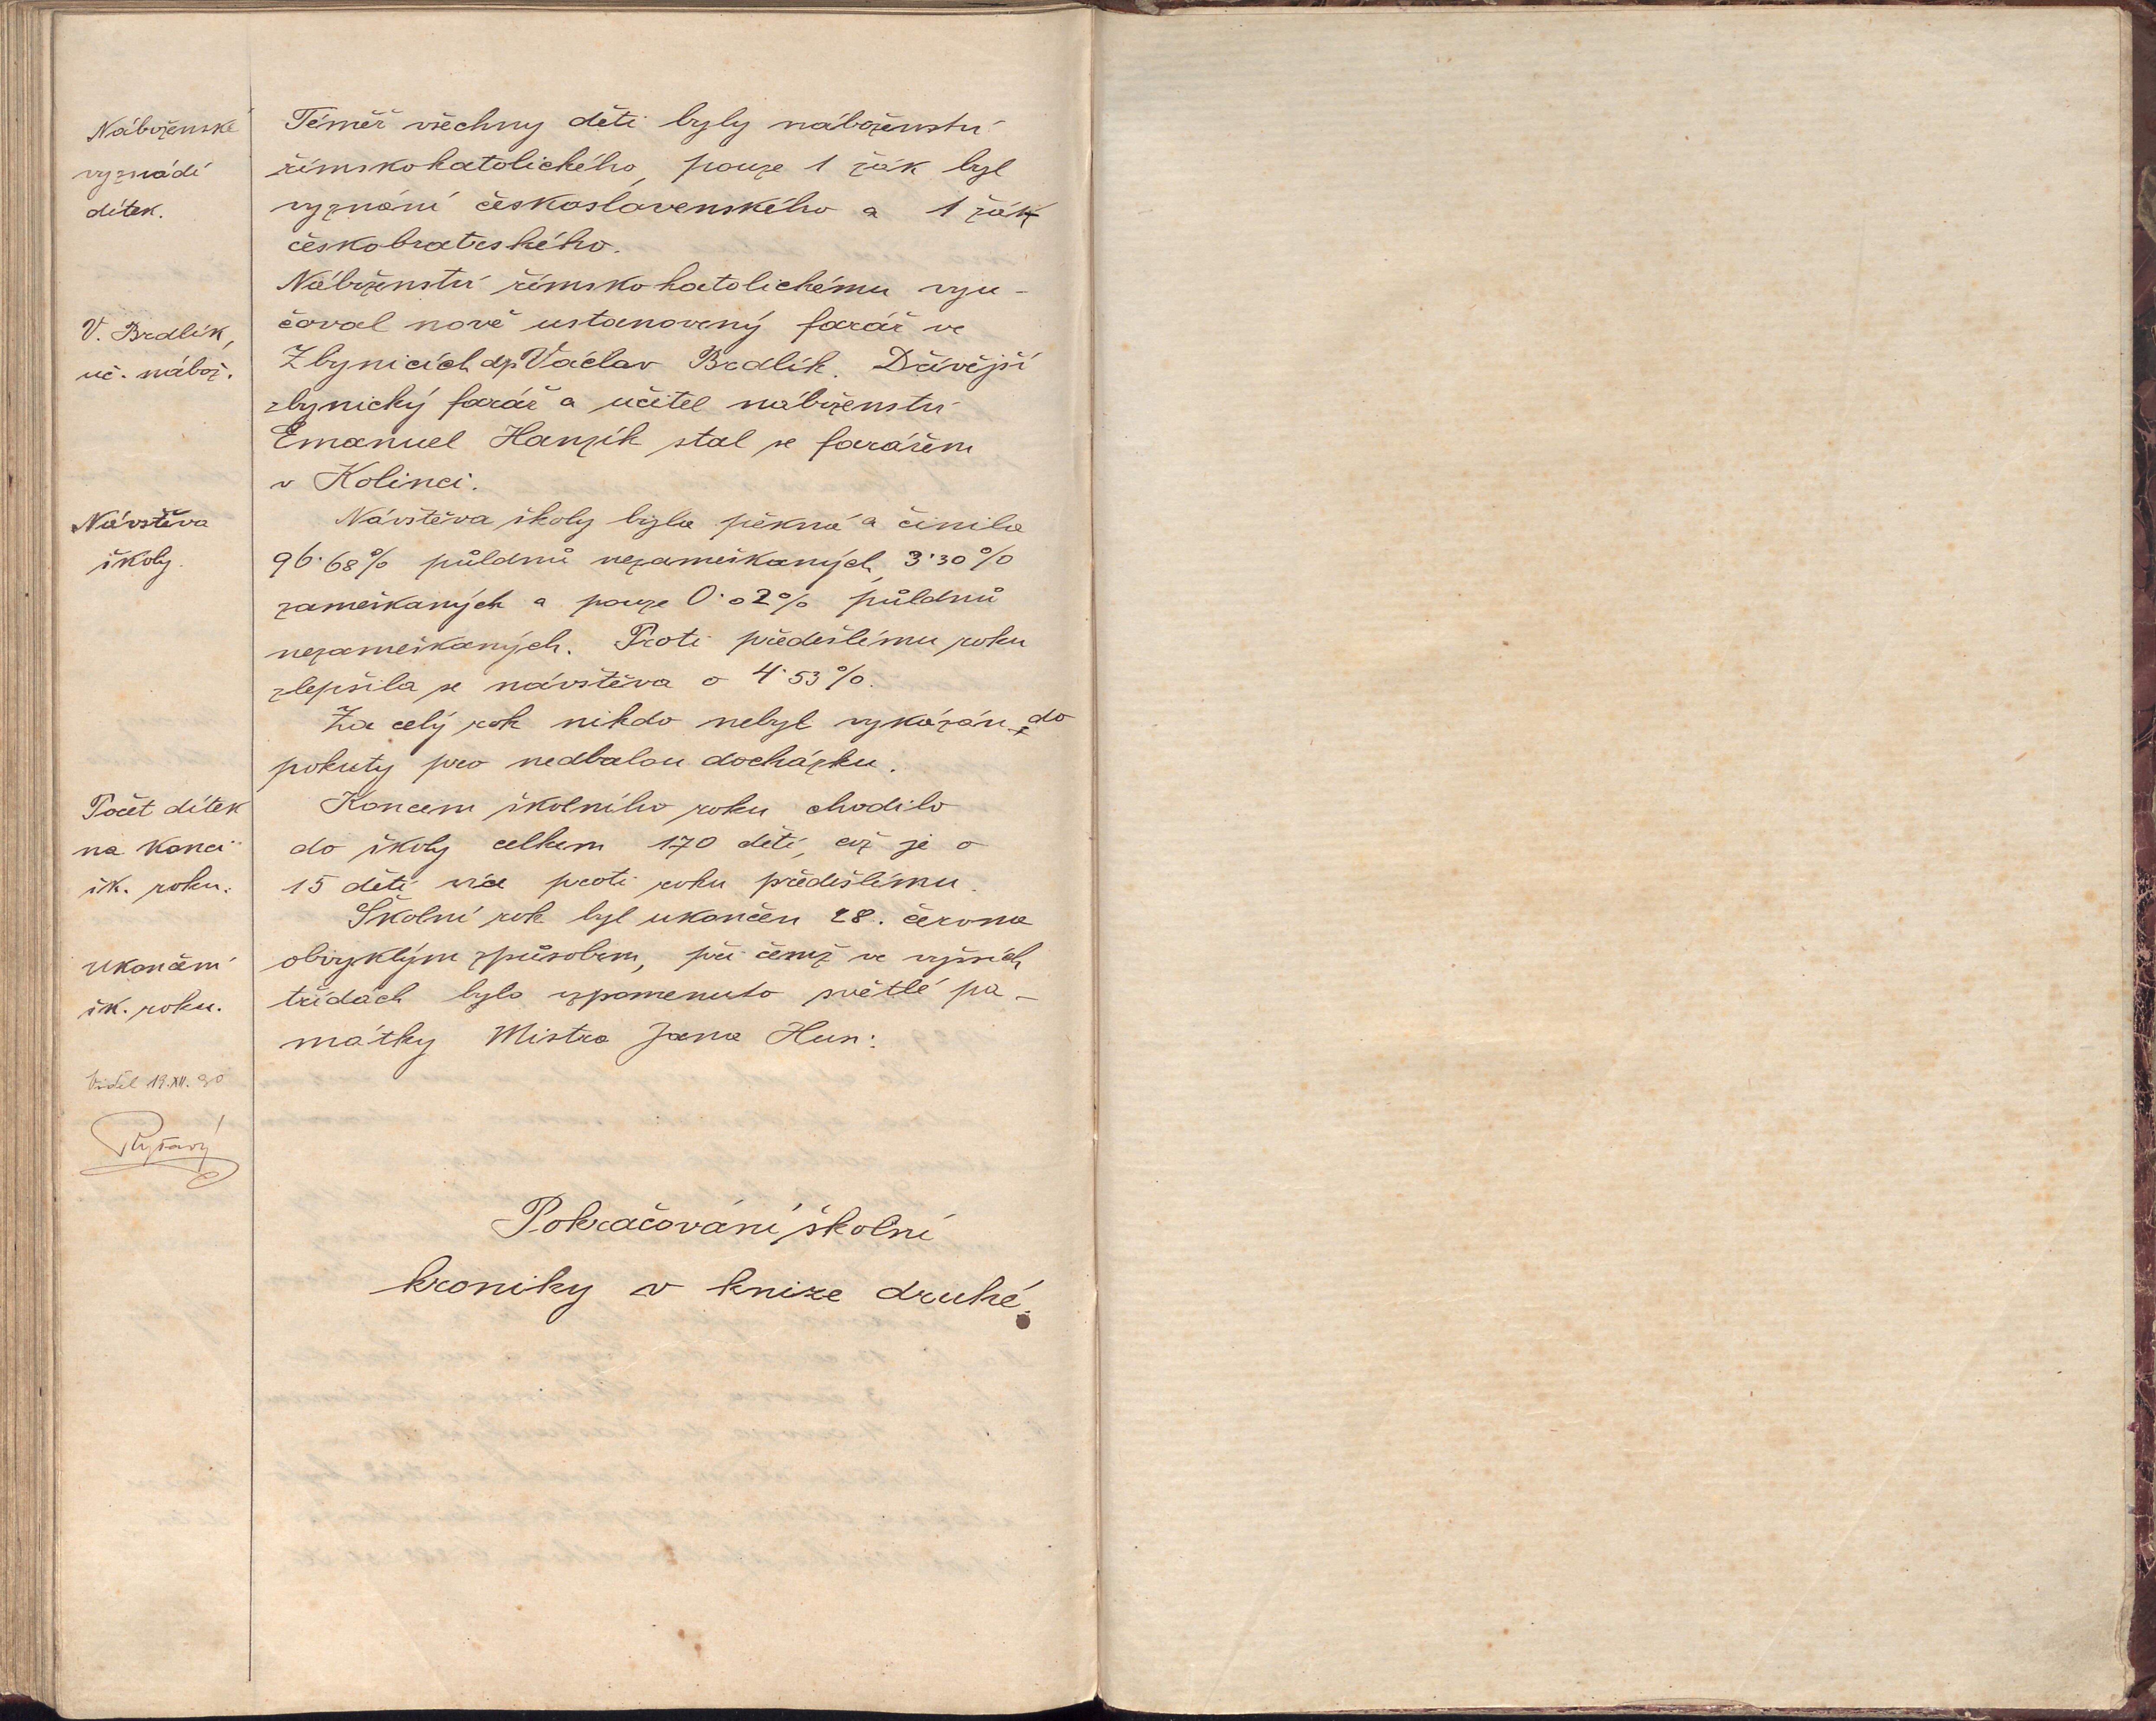 Náboženské
vyznádí
dítek.
Téměř všechny děti byly náboženství
římskokatolického, pouze 1 žák byl
vyznání československého a 1 žák
českobratrského.
Náboženství římskokatolickému vyu-
V. Brdlík,
uč. nábož.
čoval nově ustanovený farář ve
Zbynicích dp. Václav Brdlík. Dřívější
zbynický farář a učitel náboženství
Emanuel Hanzík stal se farářem
v Kolinci.
Návštěva
školy.
Návštěva školy byla pěkná a činila
96·68% půldnů nezameškaných, 3·30%
zameškaných a pouze 0·02% půldnů
nezameškaných. Proti předešlému roku
zlepšila se návštěva o 4·53%.
Za celý rok nikdo nebyl vykázán do
pokuty pro nedbalou docházku.
Počet dítek
na konci
šk. roku.
Koncem školního roku chodilo
do školy celkem 170 dětí, což je o
15 dětí více proti roku předešlému.
Školní rok byl ukončen 28. června
Ukončení
šk. roku.
obvyklým způsobem, při čemž ve vyšších
třídách bylo vzpomenuto světlé pa-
mátky Mistra Jana Husi.
Viděl 19.XII.30
Pokračování školní
kroniky v knize druhé.